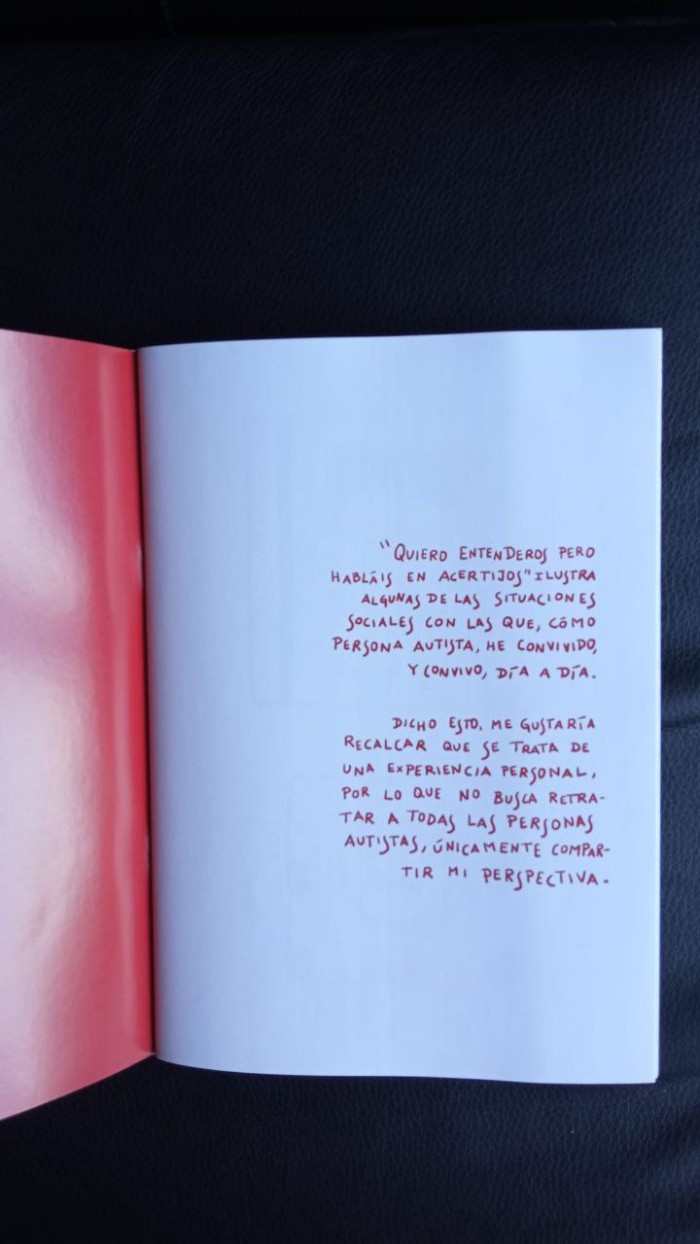 "QUIERO ENTENDEROS PERO
HABLÁIS EN ACERTIJOS" ILUSTRA
ALGUNAS DE LAS SITUACIONES
SOCIALES CON LAS QUE, CÓMO
PERSONA AUTISTA, HE CONVIVIDO,
Y CONVIVO, DÍA A DÍA.
DICHO ESTO, ME GUSTARÍA
RECALCAR QUE SE TRATA DE
UNA EXPERIENCIA PERSONAL,
POR LO QUE NO BUSCA RETRA-
TAR A TODAS LAS PERSONAS
AUTISTAS, ÚNICAMENTE COMPAR-
TIR MI PERSPECTIVA.